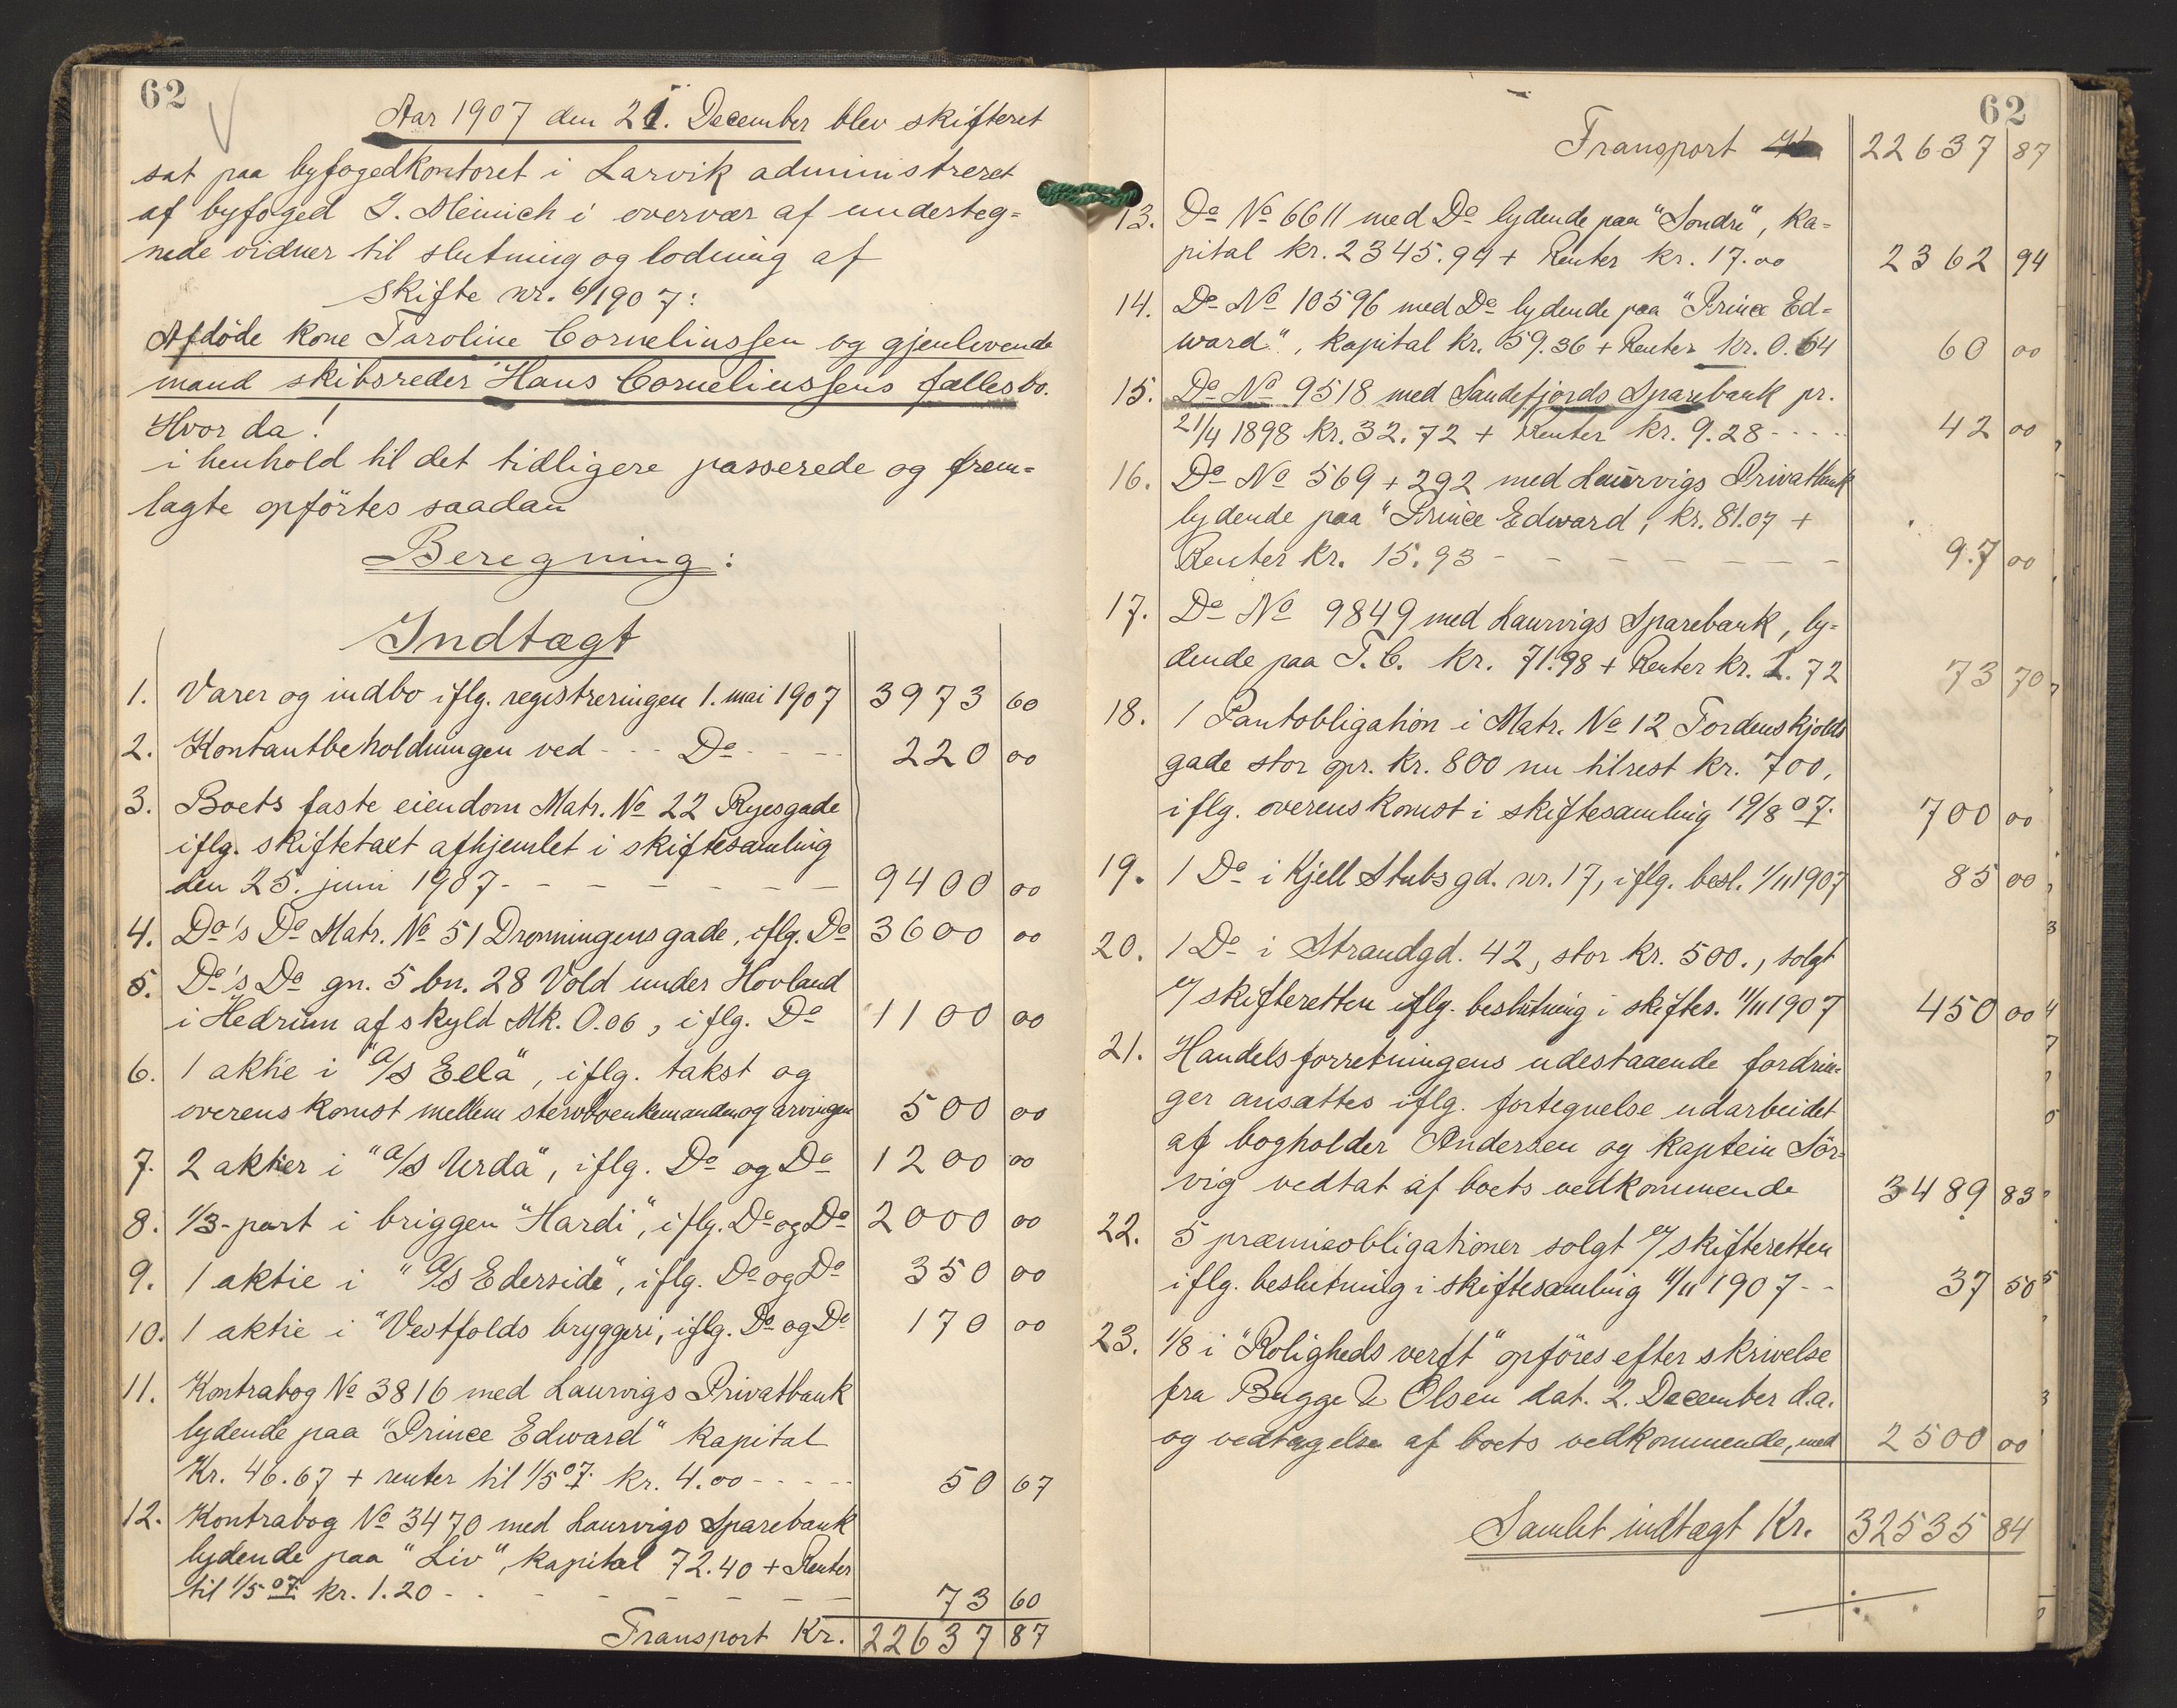 62
Aar 1907 den 21. December blev skifteret
sat paa byfogedkontoret i Larvik administreret
af byfoged J. Meinich i overvær af underteg-
nede vidner til slutning og lodning af
skifte nr. 6/1907:
Afdöde kone Taroline Corneliussen og gjenlevende
mand skibsreder Hans Corneliussens fællesbo.
Hvor da!
i henhold til det tidligere passerede og frem-
lagte opförtes saadan
Beregning:
Indtægt
1. Varer og indbo iflg. registreringen 1. mai 1907 3973 60
2. Kontantbeholdningen ved - - - Do - - - - 220 00
3. Boets faste eiendom Matr. No 22 Ryesgade
iflg. skiftetaxt afhjemlet i skiftesamling
den 25. juni 1907 - - - - - - - 9400 00
4. Do's Do Matr. No 51 Dronningensgade, iflg. Do 3600 00
5. Do's Do gn. 5 bn. 28 Vold under Hovland
i Hedrum af skyld Mk. 0.06, iflg. Do 1100 00
6. 1 aktie i "A/S Eela", iflg. takst og
overenskomst mellem stervboenkemanden og arvingen 500 00
7. 2 aktier i "A/S Urda", iflg. Do og Do 1200 00
8. 1/3-part i briggen "Hardi", iflg. Do og Do 2000 00
9. 1 aktie i "A/S Ederside", iflg. Do og Do 350 00
10. 1 aktie i "Vestfolds bryggeri, iflg. Do og Do 170 00
11. Kontrabog No 3816 med Laurvigs Privatbank
lydende paa "Prince Edward" kapital
Kr. 46.67 + renter til 1/5 07. kr. 4.00 - - - - - 50 67
12. Kontrabog No 3470 med Laurvigs Sparebank
lydende paa "Liv", kapital 72.40 + Renter
til 1/5 07 kr. 1.20 - - - - - - - - 73 60
Transport Kr. 22637 87
62
Transport 22637 87
13. Do No 6611 med Do lydende paa "Sondre", ka-
pital kr. 2345.94 + Renter kr. 17.00 2362 94
14. Do No 10596 med Do lydende paa "Prince Ed-
ward", kapital kr. 59.36 + Renter kr. 0.64 60 00
15. Do No 9518 med Sandefjords Sparebank pr.
21/4 1898 kr. 32.72 + Renter kr. 9.28 - - - - - 42 00
16. Do No 569 + 292 med Laurvigs Privatbank
lydende paa "Prince Edward, kr. 81.07 +
Renter kr. 15.93 - - - - - - - 97 00
17. Do No 9849 med Laurvigs Sparebank, ly-
dende paa T. C. kr. 71.98 + Renter kr. 1.72 73 70
18. 1 Pantobligation i Matr. No 12 Tordenskjolds
gade stor opr. kr. 800 nu tilrest kr. 700,
iflg. overenskomst i skiftesamling 19/8 07. 700 00
19. 1 Do i Kjell Stubs gd. nr. 17, iflg. besl. 1/11 1907 85 00
20. 1 Do i Strandgd. 42, stor kr. 500., solgt
af skifteretten iflg. beslutning i skiftes. 11/11 1907 450 00
21. Handelsforretningens udestaaende fordrin-
ger ansættes iflg. fortegnelse udarbeidet
af bogholder Andersen og kaptein Sör-
vig vedtat af boets vedkommende 3489 83
22. 5 præmieobligationer solgt af skifteretten
iflg. beslutning i skiftesamling 11/11 1907 - - 37 50
23. 1/8 i "Roligheds verft" opföres efter skrivelse
fra Bugge & Olsen dat. 2. December d.a.
og vedtagelse af boets vedkommende, med 2500 00
Samlet indtægt Kr. 32535 84